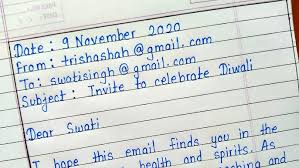 Date : 9 November 2020
From : trishashah@gmail.com
To : swatisingh@gmail.com
Subject : Invite to celebrate Diwali
Dear Swati
I hope this email finds you in the
health and spirits. As
and